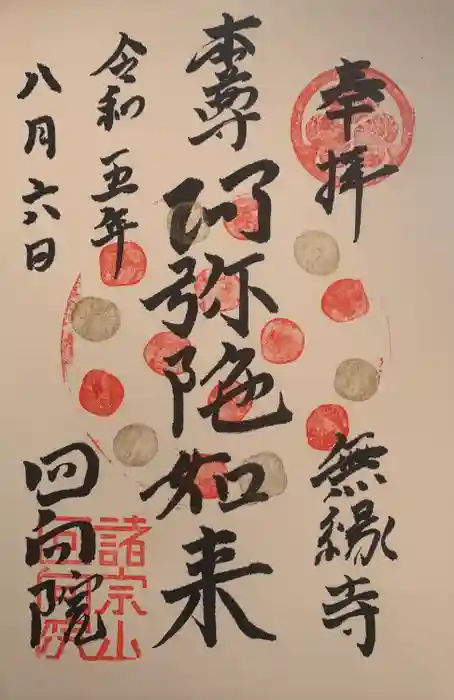 奉拝
無縁寺
本尊
阿弥陀如来
令和五年
八月六日
回向院
諸宗山
回向院